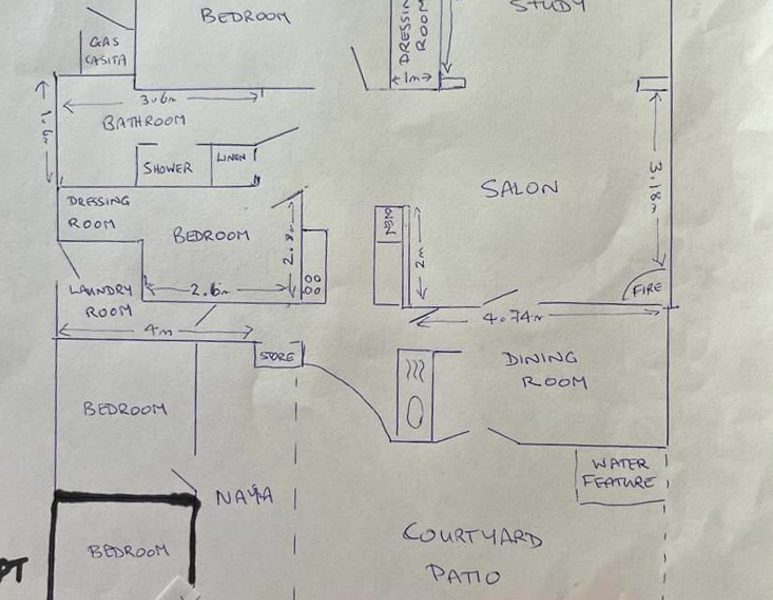 BEDROOM
DRESSING
ROOM
STUDY
GAS
CASITA
1m
3.6m
BATHROOM
SHOWER
LINEN
1.6m
3.18m
SALON
DRESSING
ROOM
BEDROOM
2.8m
2m
2.6m
LAUNDRY
ROOM
FIRE
4m
4.74m
STORE
DINING
ROOM
BEDROOM
WATER
FEATURE
NAYA
COURTYARD
PATIO
BEDROOM
PT